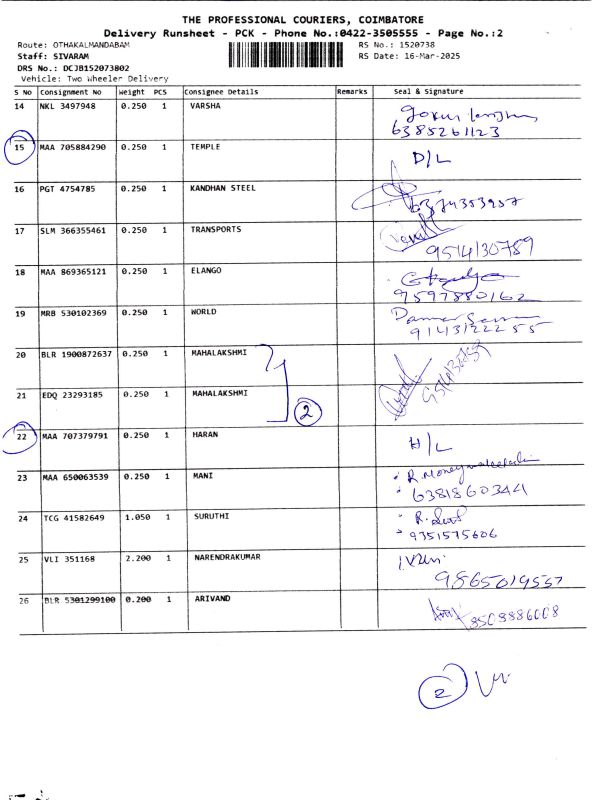 THE PROFESSIONAL COURIERS, COIMBATORE
Delivery Runsheet - PCK - Phone No.:0422-3505555 - Page No.:2
Route: OTHAKALMANDABAM RS No.: 1520738
Staff: SIVARAM RS Date: 16-Mar-2025
DRS No.: DCJB152073802
Vehicle: Two Wheeler Delivery
S No Consignment No Weight PCS Consignee Details Remarks Seal & Signature
14 NKL 3497948 0.250 1 VARSHA
6385261123
15 MAA 705884290 0.250 1 TEMPLE D/L
16 PGT 4754785 0.250 1 KANDHAN STEEL 6374353957
17 SLM 366355461 0.250 1 TRANSPORTS
9514130789
18 MAA 869365121 0.250 1 ELANGO
9597880162
19 MRB 530102369 0.250 1 WORLD
9143122255
20 BLR 1900872637 0.250 1 MAHALAKSHMI
21 EDQ 23293185 0.250 1 MAHALAKSHMI
2
22 MAA 707379791 0.250 1 HARAN H/L
23 MAA 650063539 0.250 1 MANI
6381860344
24 TCG 41582649 1.050 1 SURUTHI
9351575606
25 VLI 351168 2.200 1 NARENDRAKUMAR
9865019557
26 BLR 5301299100 0.200 1 ARIVAND 8508886008
2